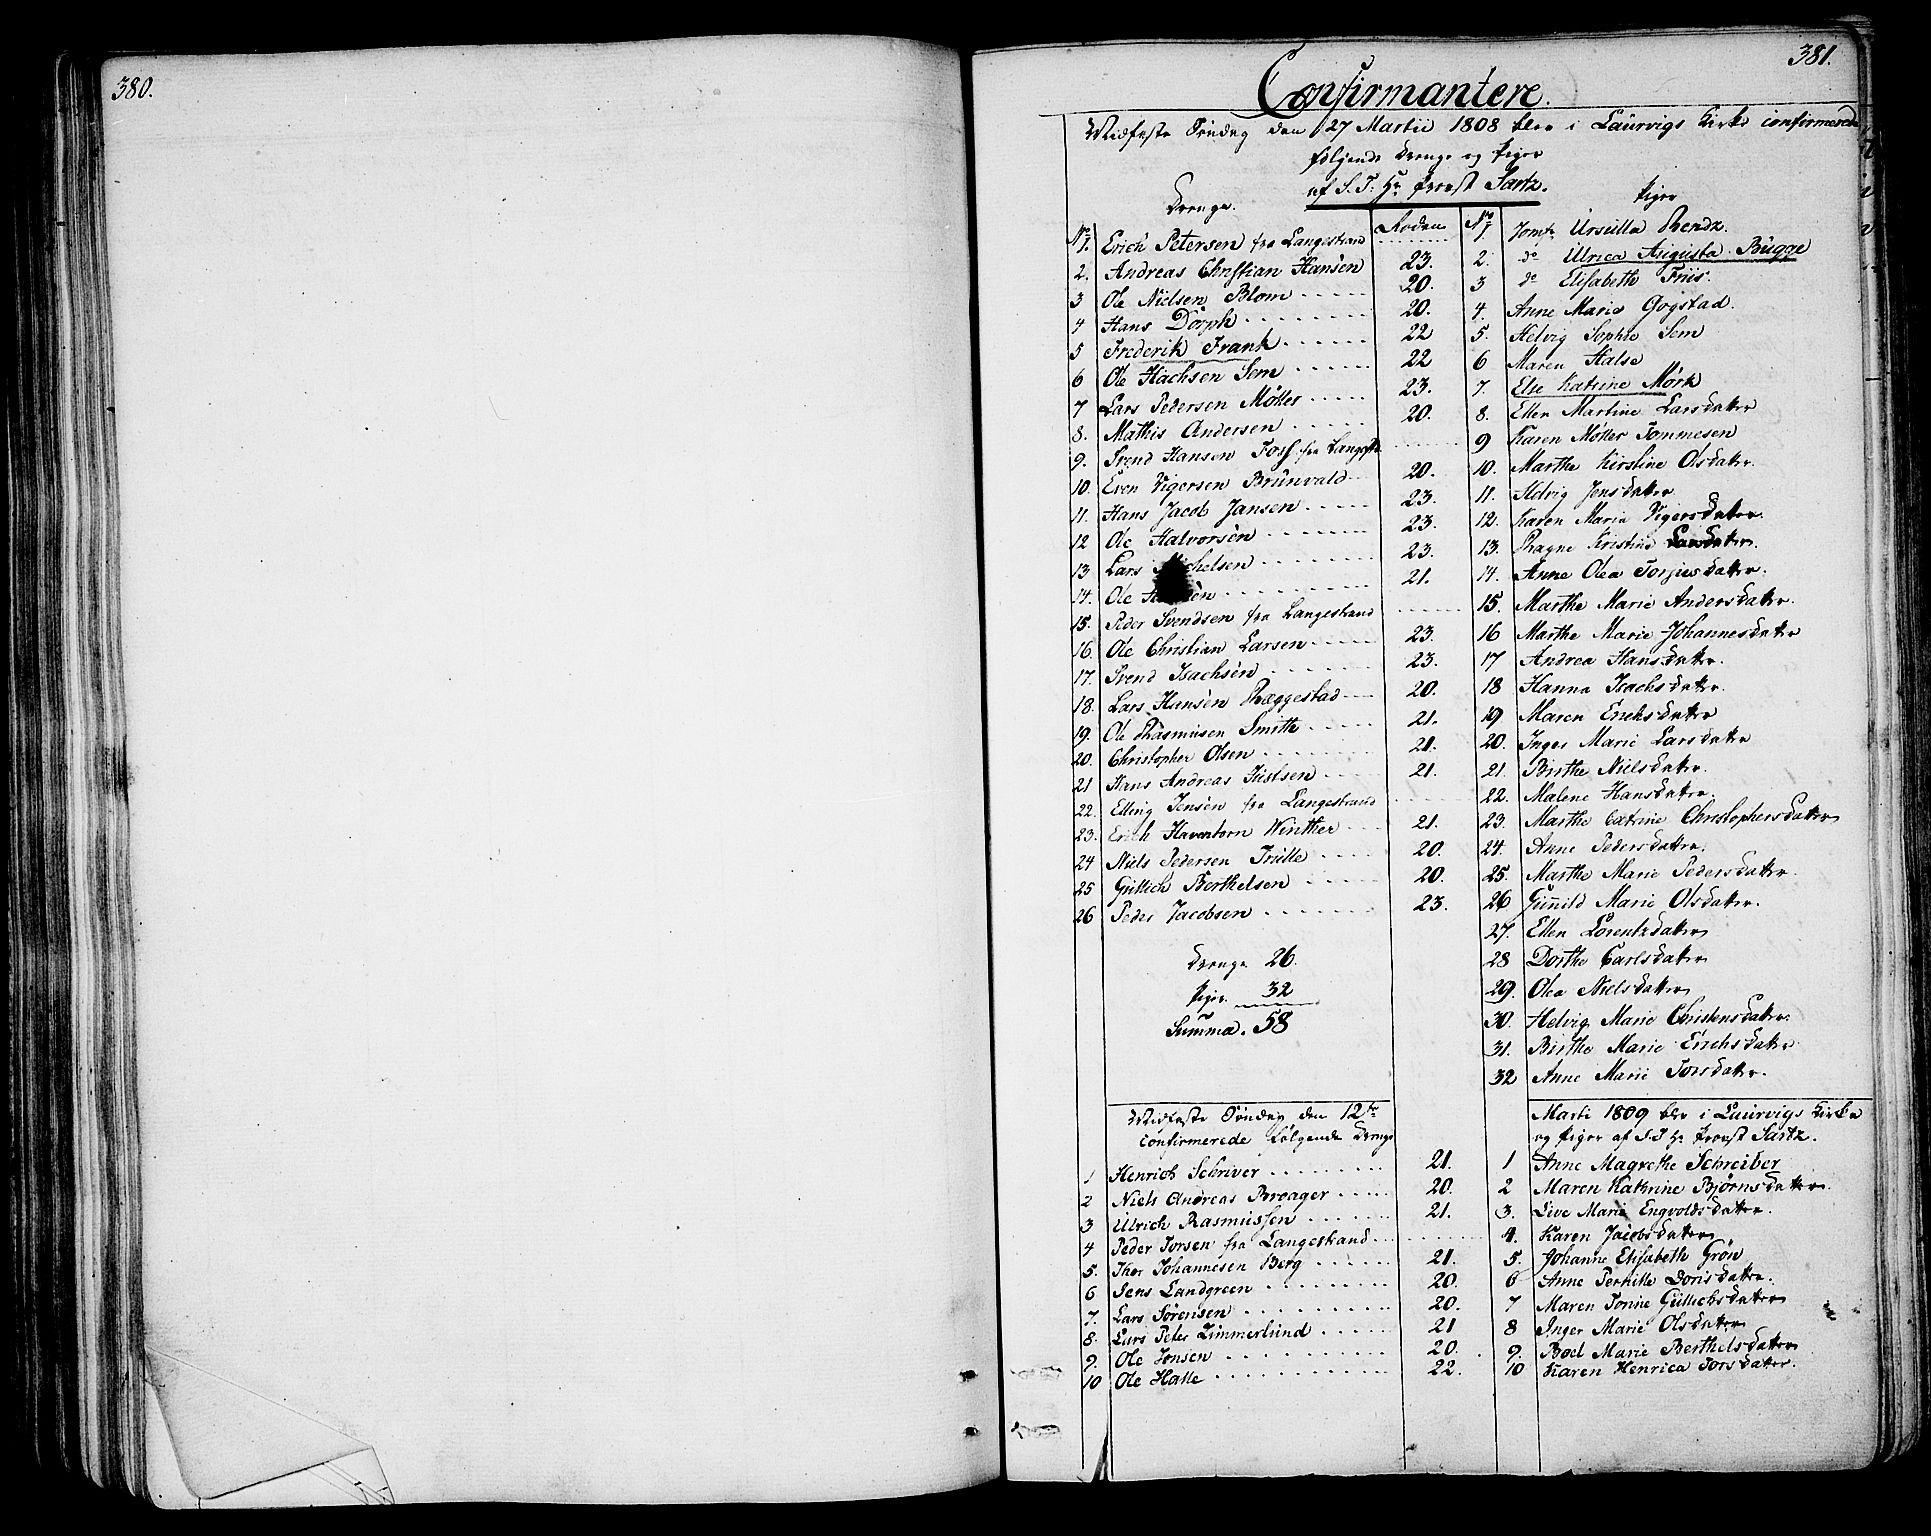 380.
381.
Confirmantere.
Midfaste Söndag den 27 Martii 1808 blev i Laurvigs Kirke confirmered
følgende Drenge og Piger
af S. T. Hr Provst Sartz.
Drenge.
No 1. Erich Petersen fra Langestrand
2. Andreas Christian Hansen 23.
3 Ole Nielsen Blom 20.
4 Hans Dorph 20.
5 Frederik Frank 22
6 Ole Isachsen Sem 22
7 Lars Pedersen Møller 23.
8. Mathis Andersen 20.
9. Svend Hansen Foss fra Langestr
10. Even Vigersen Brunvald 20.
11. Hans Jacob Jansen 23.
12 Ole Halvorsen 23.
13 Lars Michelsen 23.
14. Ole 21.
15. Peder Svendsen fra Langestrand
16. Ole Christian Larsen 23.
17. Svend Isachsen 23.
18. Lars Hansen Ræggestad 20.
19. Ole Rasmusen Smith 21.
20. Christopher Olsen 21.
21 Hans Andreas Justsen 21.
22. Elling Jensen fra Langestrand
23. Erich Haventorn Winther 21.
24 Niels Pedersen Trulle 20.
25 Gullich Berthelsen 20.
26 Peder Jacobsen 23.
Drenge 26.
Piger 32
Summa. 58
Roden
Piger
No 1. Jomf. Ursulla Rendz.
2. do Ulrica Augusta Bugge
3 do Elisabeth Friis.
4. Anne Marie Gogstad.
5. Helvig Sophie Sem
6 Maren Halse
7. Else Katrine Mørk
8. Ellen Martine Larsdatter
9 Karen Møller Tommesen
10. Marthe Kirstine Olsdatter.
11. Helvig Jensdatter
12. Karen Maria Vigersdatter.
13. Ragne Kristine Larsdatter.
14. Anne Olea Torjusdatter.
15. Marthe Marie Andersdatter.
16 Marthe Marie Johannesdatter
17 Andrea Hansdatter.
18 Hanna Isachsdatter.
19 Maren Erichsdatter
20. Inger Marie Larsdatter
21. Birthe Nielsdatter.
22. Malene Hansdatter.
23. Marthe Catrine Christophersdatter
24. Anne Pedersdatter.
25. Marthe Marie Pedersdatter.
26 Gunild Marie Olsdatter.
27. Ellen Lorentzdatter
28 Dorthe Carlsdatter
29. Olea Nielsdatter
30. Helvig Marie Christensdatter
31. Birthe Marie Erichsdatter
32 Anne Marie Torsdatter.
Midfaste Söndag den 12te Marti 1809 blev i Laurvigs Kirke
confirmerede følgende Drenge og Piger af S. T. Hr Provst Sartz.
1 Henrich Schriver 21.
2 Niels Andreas Broager 20.
3 Ulrich Rasmussen 21.
4 Peder Torsen fra Langestrand
5. Thor Johannesen Berg 21.
6 Jens Landgreen 20.
7. Lars Sørensen 20.
8. Lars Peter Zimmerlund 21
9. Ole Jonsen 20.
10 Ole Halle 22.
1 Anne Magrethe Schreiber
2 Maren Kathrine Bjørnsdatter.
3. Live Marie Engvoldsdatter.
4. Karen Jacobsdatter
5. Johanne Elisabeth Grön
6 Anne Pernille Dorisdatter.
7 Maren Tonine Gullichsdatter
8 Inger Marie Olsdatter
9. Boel Marie Berthelsdatter
10 Karen Henrica Torsdatter.